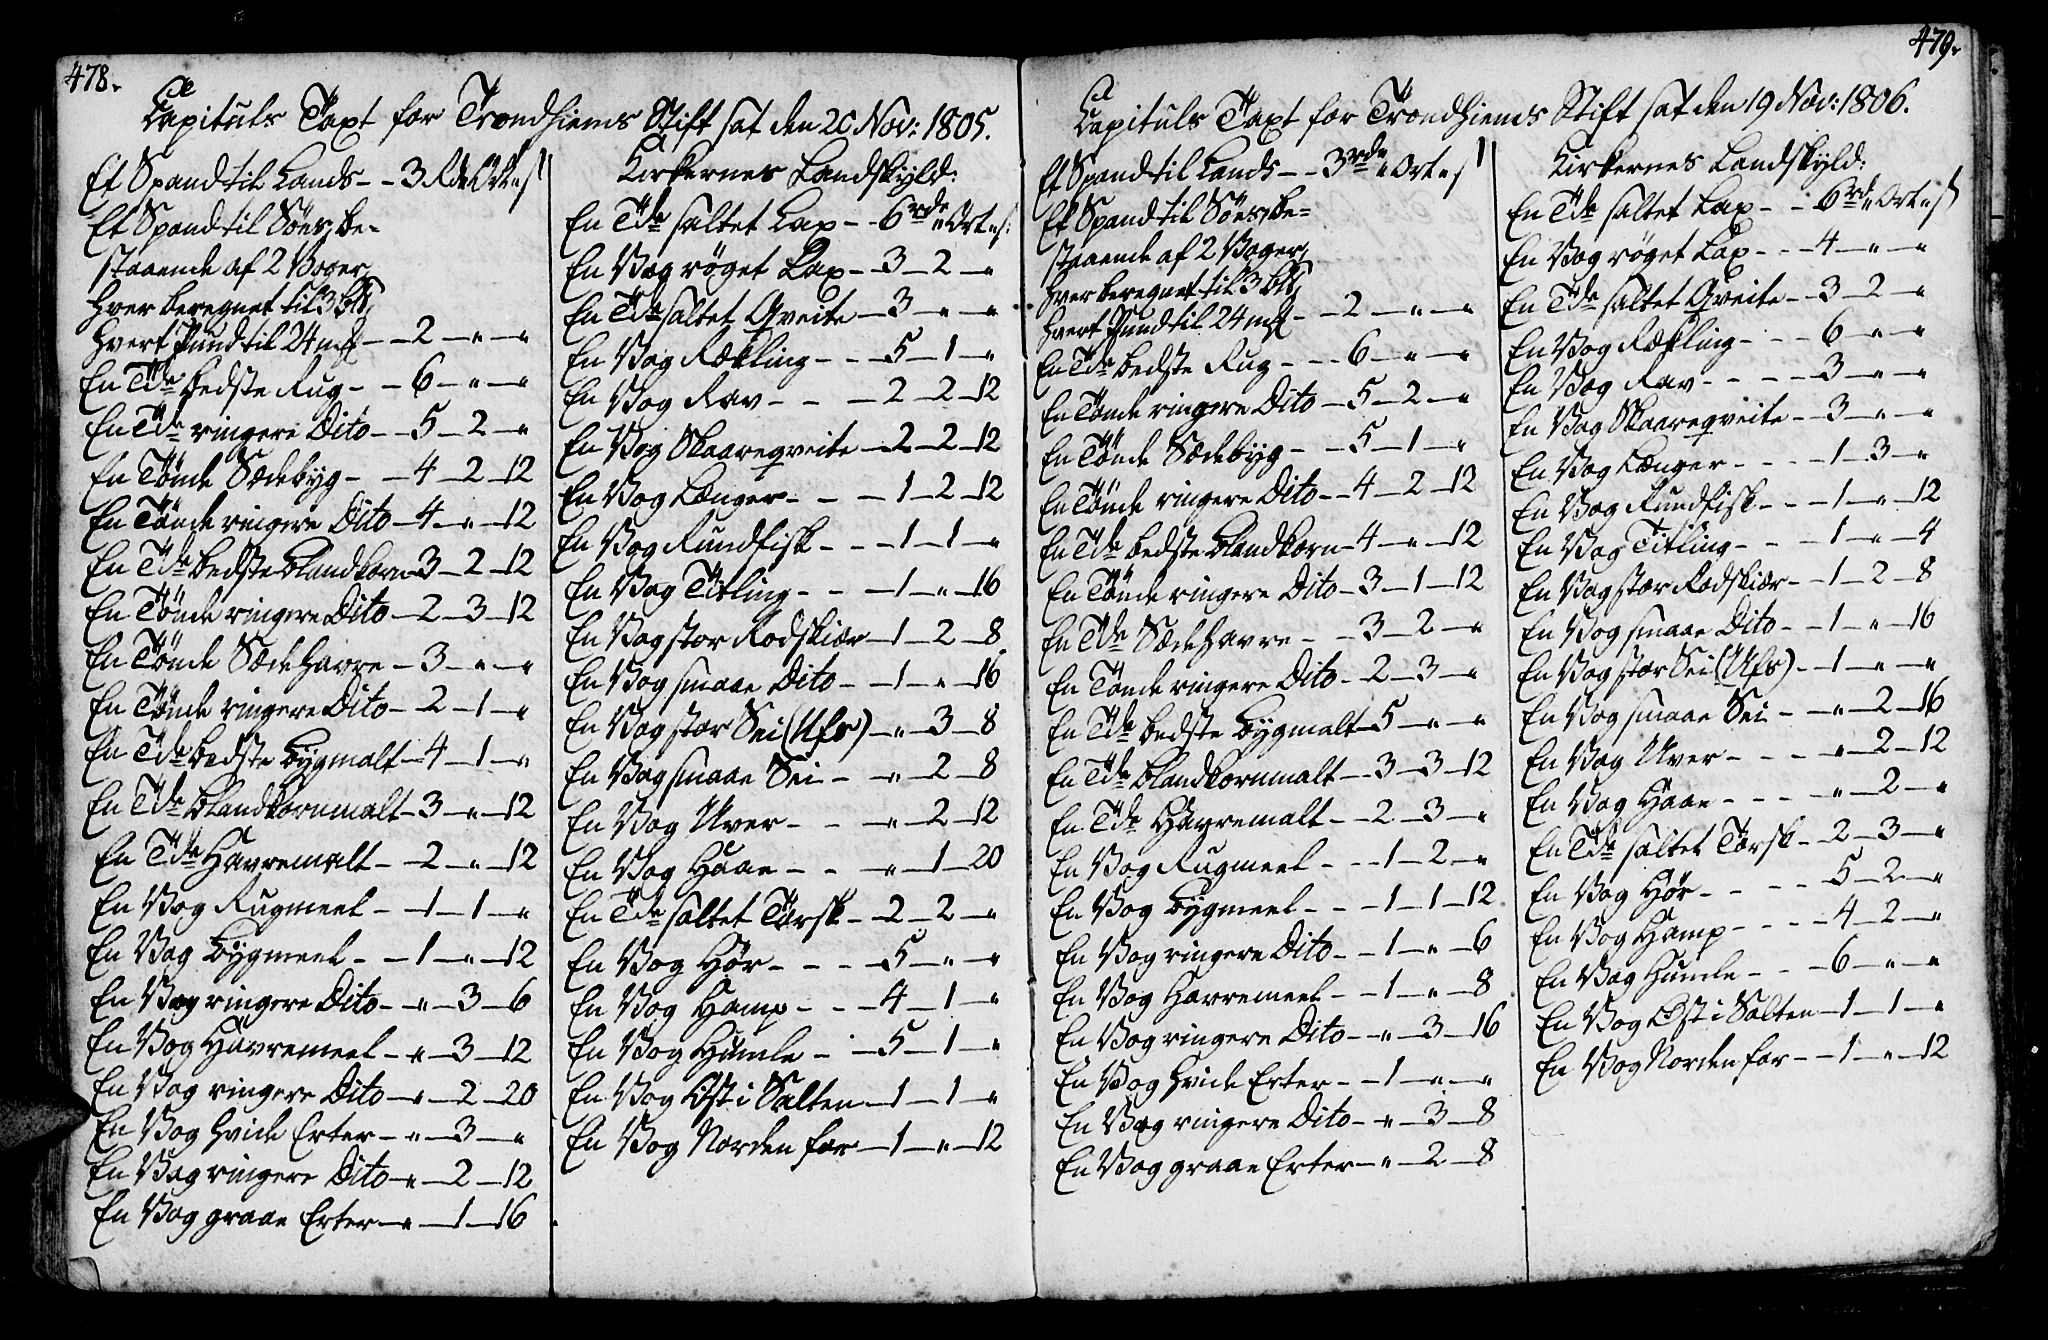 478.
Capituls Taxt for Trondhiems Stift sat den 20 Nov: 1805.
Et Spand til Lands - - 3 Rdr " Ort " s
Et Spand til Söes, be-
staaende af 2 Voger,
hver beregnet til 3 b℔,
hvert Pund til 24 m℔ - - 2 - " - "
En Tde bedste Rug - - 6 - " - "
En Tde ringere Dito - - 5 - 2 - "
En Tönde Sædebyg - - 4 - 2 - 12
En Tönde ringere Dito - 4 - " - 12
En Tde bedste blandkorn - 3 - 2 - 12
En Tönde ringere Dito - 2 - 3 - 12
En Tönde Sædehavre - 3 - " - "
En Tönde ringere Dito - 2 - 1 - "
En Tde bedste bygmalt - 4 - 1 - "
En Tde blandkornmalt - 3 - " - 12
En Tde Havremalt - - 2 - " - 12
En Vog Rugmeel - - 1 - 1 - "
En Vog bygmeel - - 1 - " - 12
En Vog ringere Dito - " - 3 - 6
En Vog Havremeel - " - 3 - 12
En Vog ringere Dito - " - 2 - 20
En Vog hvide Erter - " - 3 - "
En Vog ringere Dito - " - 2 - 12
En Vog graae Erter - " - 1 - 16
Kirkernes Landskyld:
En Tde saltet Lax - 6 rdr " Ort " s:
En Vog röget Lax - 3 - 2 - "
En Tde saltet Qveite - 3 - " - "
En Vog Rækling - - 5 - 1 - "
En Vog Rav - - - 2 - 2 - 12
En Vog Skaareqveite - 2 - 2 - 12
En Vog Længer - - - 1 - 2 - 12
En Vog Rundfisk - - 1 - 1 - "
En Vog Titling - - - 1 - " - 16
En Vog stor Rodskiær - 1 - 2 - 8
En Vog smaae Dito - - 1 - " - 16
En Vog stor Sei (Ufs) - " - 3 - 8
En Vog smaae Sei - " - 2 - 8
En Vog Uver - - " - 2 - 12
En Vog Haae - - " - 1 - 20
En Tde saltet Torsk - 2 - 2 - "
En Vog Hör - - - 5 - " - "
En Vog Hamp - - 4 - 1 - "
En Vog Humle - - 5 - 1 - "
En Vog Ost i Salten - 1 - 1 - "
En Vog Norden for - 1 - " - 12
479.
Capituls Taxt for Trondhiems Stift sat den 19 Nov: 1806.
Et Spand til Lands - - 3 rdr " Ort " s
Et Spand til Söes, be-
staaende af 2 Voger,
hver beregnet til 3 b℔,
hvert Pund til 24 m℔ - - 2 - " - "
En Tde bedste Rug - - 6 - " - "
En Tönde ringere Dito - 5 - 2 - "
En Tönde Sædebyg - - 5 - 1 - "
En Tönde ringere Dito - 4 - 2 - 12
En Tde bedste blandkorn - 4 - " - 12
En Tönde ringere Dito - 3 - 1 - 12
En Tde Sædehavre - - 3 - 2 - "
En Tönde ringere Dito - 2 - 3 - "
En Tde bedste bygmalt - 5 - " - "
En Tde blandkornmalt - 3 - 3 - 12
En Tde Havremalt - 2 - 3 - "
En Vog Rugmeel - - 1 - 2 - "
En Vog bygmeel - - 1 - 1 - 12
En Vog ringere Dito - 1 - " - 6
En Vog Havremeel - 1 - " - 8
En Vog ringere Dito - " - 3 - 16
En Vog hvide Erter - 1 - " - "
En Vog ringere Dito - " - 3 - 8
En Vog graae Erter - " - 2 - 8
Kirkernes Landskyld:
En Tde saltet Lax - - 6 rd " Ort " s
En Vog röget Lax - - 4 - " - "
En Tde saltet Qveite - 3 - 2 - "
En Vog Rækling - - - 6 - " - "
En Vog Rav - - - - 3 - " - "
En Vog Skaareqveite - 3 - " - "
En Vog Længer - - - 1 - 3 - "
En Vog Rundfisk - - 1 - " - 12
En Vog Titling - - 1 - " - 4
En Vog stor Rodskiær - 1 - 2 - 8
En Vog smaae Dito - 1 - " - 16
En Vog stor Sei (Ufs) - 1 - " - "
En Vog smaae Sei - " - 2 - 16
En Vog Uver - - - " - 2 - 12
En Vog Haae - - - " - 2 - "
En Tde saltet Torsk - 2 - 3 - "
En Vog Hör - - - - 5 - 2 - "
En Vog Hamp - - - 4 - 2 - "
En Vog Humle - - 6 - " - "
En Vog Ost i Salten - 1 - 1 - "
En Vog Norden for - - 1 - " - 12